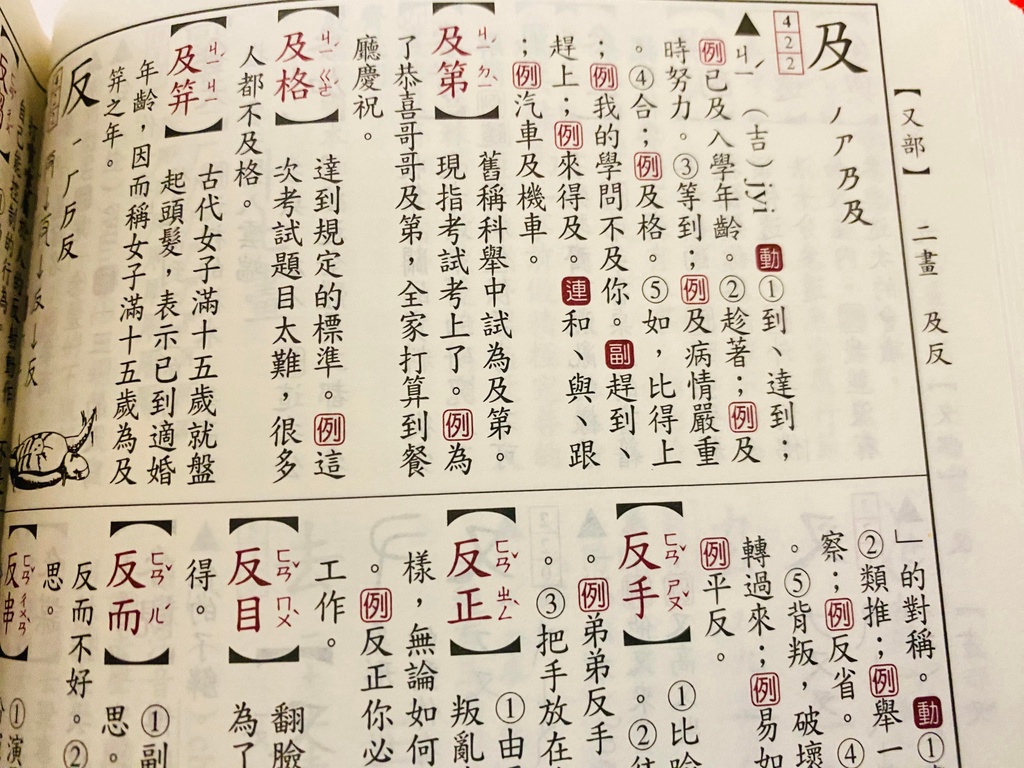 【又部】 二畫 及反
及 ノ 乃 及
4 2 2
▲ㄐㄧˊ (吉) jyí 動①到、達到;
例已及入學年齡。②趁著;例及
時努力。③等到;例及病情嚴重
。④合;例及格。⑤如,比得上
;例我的學問不及你。副趕到、
趕上;例來得及。連和、與、跟
;例汽車及機車。
【及第】ㄐㄧˊ ㄉㄧˋ 舊稱科舉中試為及第。
現指考試考上了。例為
了恭喜哥哥及第,全家打算到餐
廳慶祝。
【及格】ㄐㄧˊ ㄍㄜˊ 達到規定的標準。例這
次考試題目太難,很多
人都不及格。
【及笄】ㄐㄧˊ ㄐㄧ 古代女子滿十五歲就盤
起頭髮,表示已到適婚
年齡,因而稱女子滿十五歲為及
笄之年。
反 一 厂 反 反
」的對稱。動①
②類推;例舉一
察;例反省。④
。⑤背叛,破壞
轉過來;例易如
例平反。
【反手】ㄈㄢˇ ㄕㄡˇ ①比喻
。②
。例弟弟反手
。③把手放在
工作。
【反正】ㄈㄢˇ ㄓㄥˋ ①由
叛亂
樣,無論如何
。例反正你必
【反目】ㄈㄢˇ ㄇㄨˋ 翻臉
為了
得。
【反而】ㄈㄢˇ ㄦˊ ①副
思。
反而不好。②
思。
反串 ㄈㄢˇ ㄔㄨㄢˋ ①演